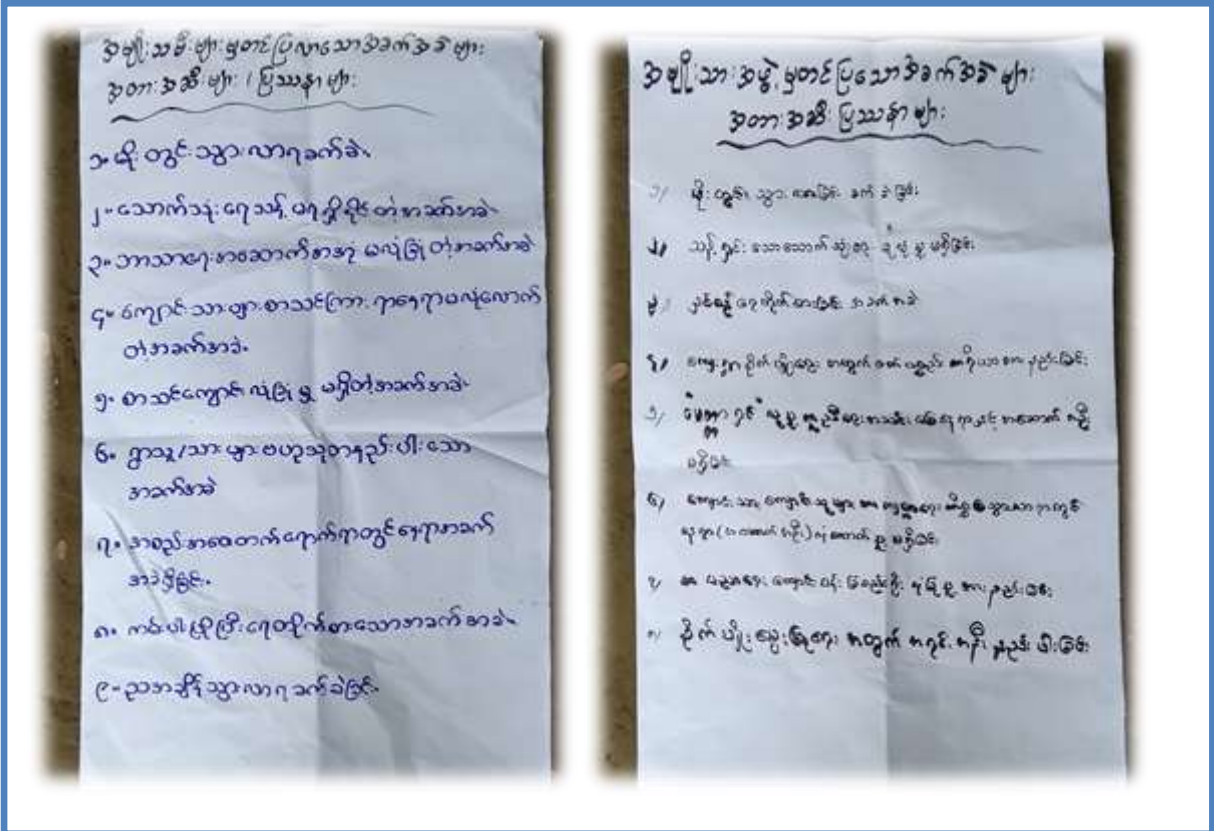 အမျိုးသမီးများမှတင်ပြလာသောအခက်အခဲများ
အတားအဆီးများ / ပြဿနာများ
၁။ မိုးတွင်းသွားလာရခက်ခဲ။
၂။ သောက်သုံးရေသန့် မရရှိနိုင်တဲ့အခက်အခဲ။
၃။ ဘာသာရေးအဆောက်အအုံ မလုံခြုံတဲ့အခက်အခဲ
၄။ ကျောင်းသားများစာသင်ကြားရာနေရာမလုံလောက်
တဲ့အခက်အခဲ။
၅။ စာသင်ကျောင်းလုံခြုံမှု မရှိတဲ့အခက်အခဲ။
၆။ ရွာသူ/သားများဗဟုသုတနည်းပါးသော
အခက်အခဲ
၇။ အစည်းအဝေးတက်ရောက်ရာတွင်နေရာအခက်
အခဲရှိခြင်း။
၈။ ကမ်းပါးပြိုပြီးရေတိုက်စားသောအခက်အခဲ။
၉။ ညအချိန်သွားလာရခက်ခဲခြင်း။
အမျိုးသားအဖွဲ့မှတင်ပြသောအခက်အခဲများ
အတားအဆီးပြဿနာများ
၁/ မိုးတွင်း သွားလာခြင်း ခက်ခဲခြင်း
၂/ သန့်ရှင်းသောသောက်သုံးရေ လုံမှုမရှိခြင်း
၃/ ရေတိုက်စားခြင်း အခက်အခဲ
၄/ စိုက်ပျိုးရေး အတွက် စက်ပစ္စည်း ကိရိယာ အားနည်းခြင်း
၅/ အဆောက်အဦ
မရှိခြင်း
၆/ ကျောင်းသား ကျောင်းသူများ
(အဆောက်အဦး) လုံလောက်မှု မရှိခြင်း
၇/ ပညာရေး ကျောင်းဝန်း ခြံစည်းရိုး လုံခြုံမှု အားနည်းခြင်း
၈/ စိုက်ပျိုးမွေးမြူရေး အတွက် အရင်းအနှီး နည်းပါးခြင်း